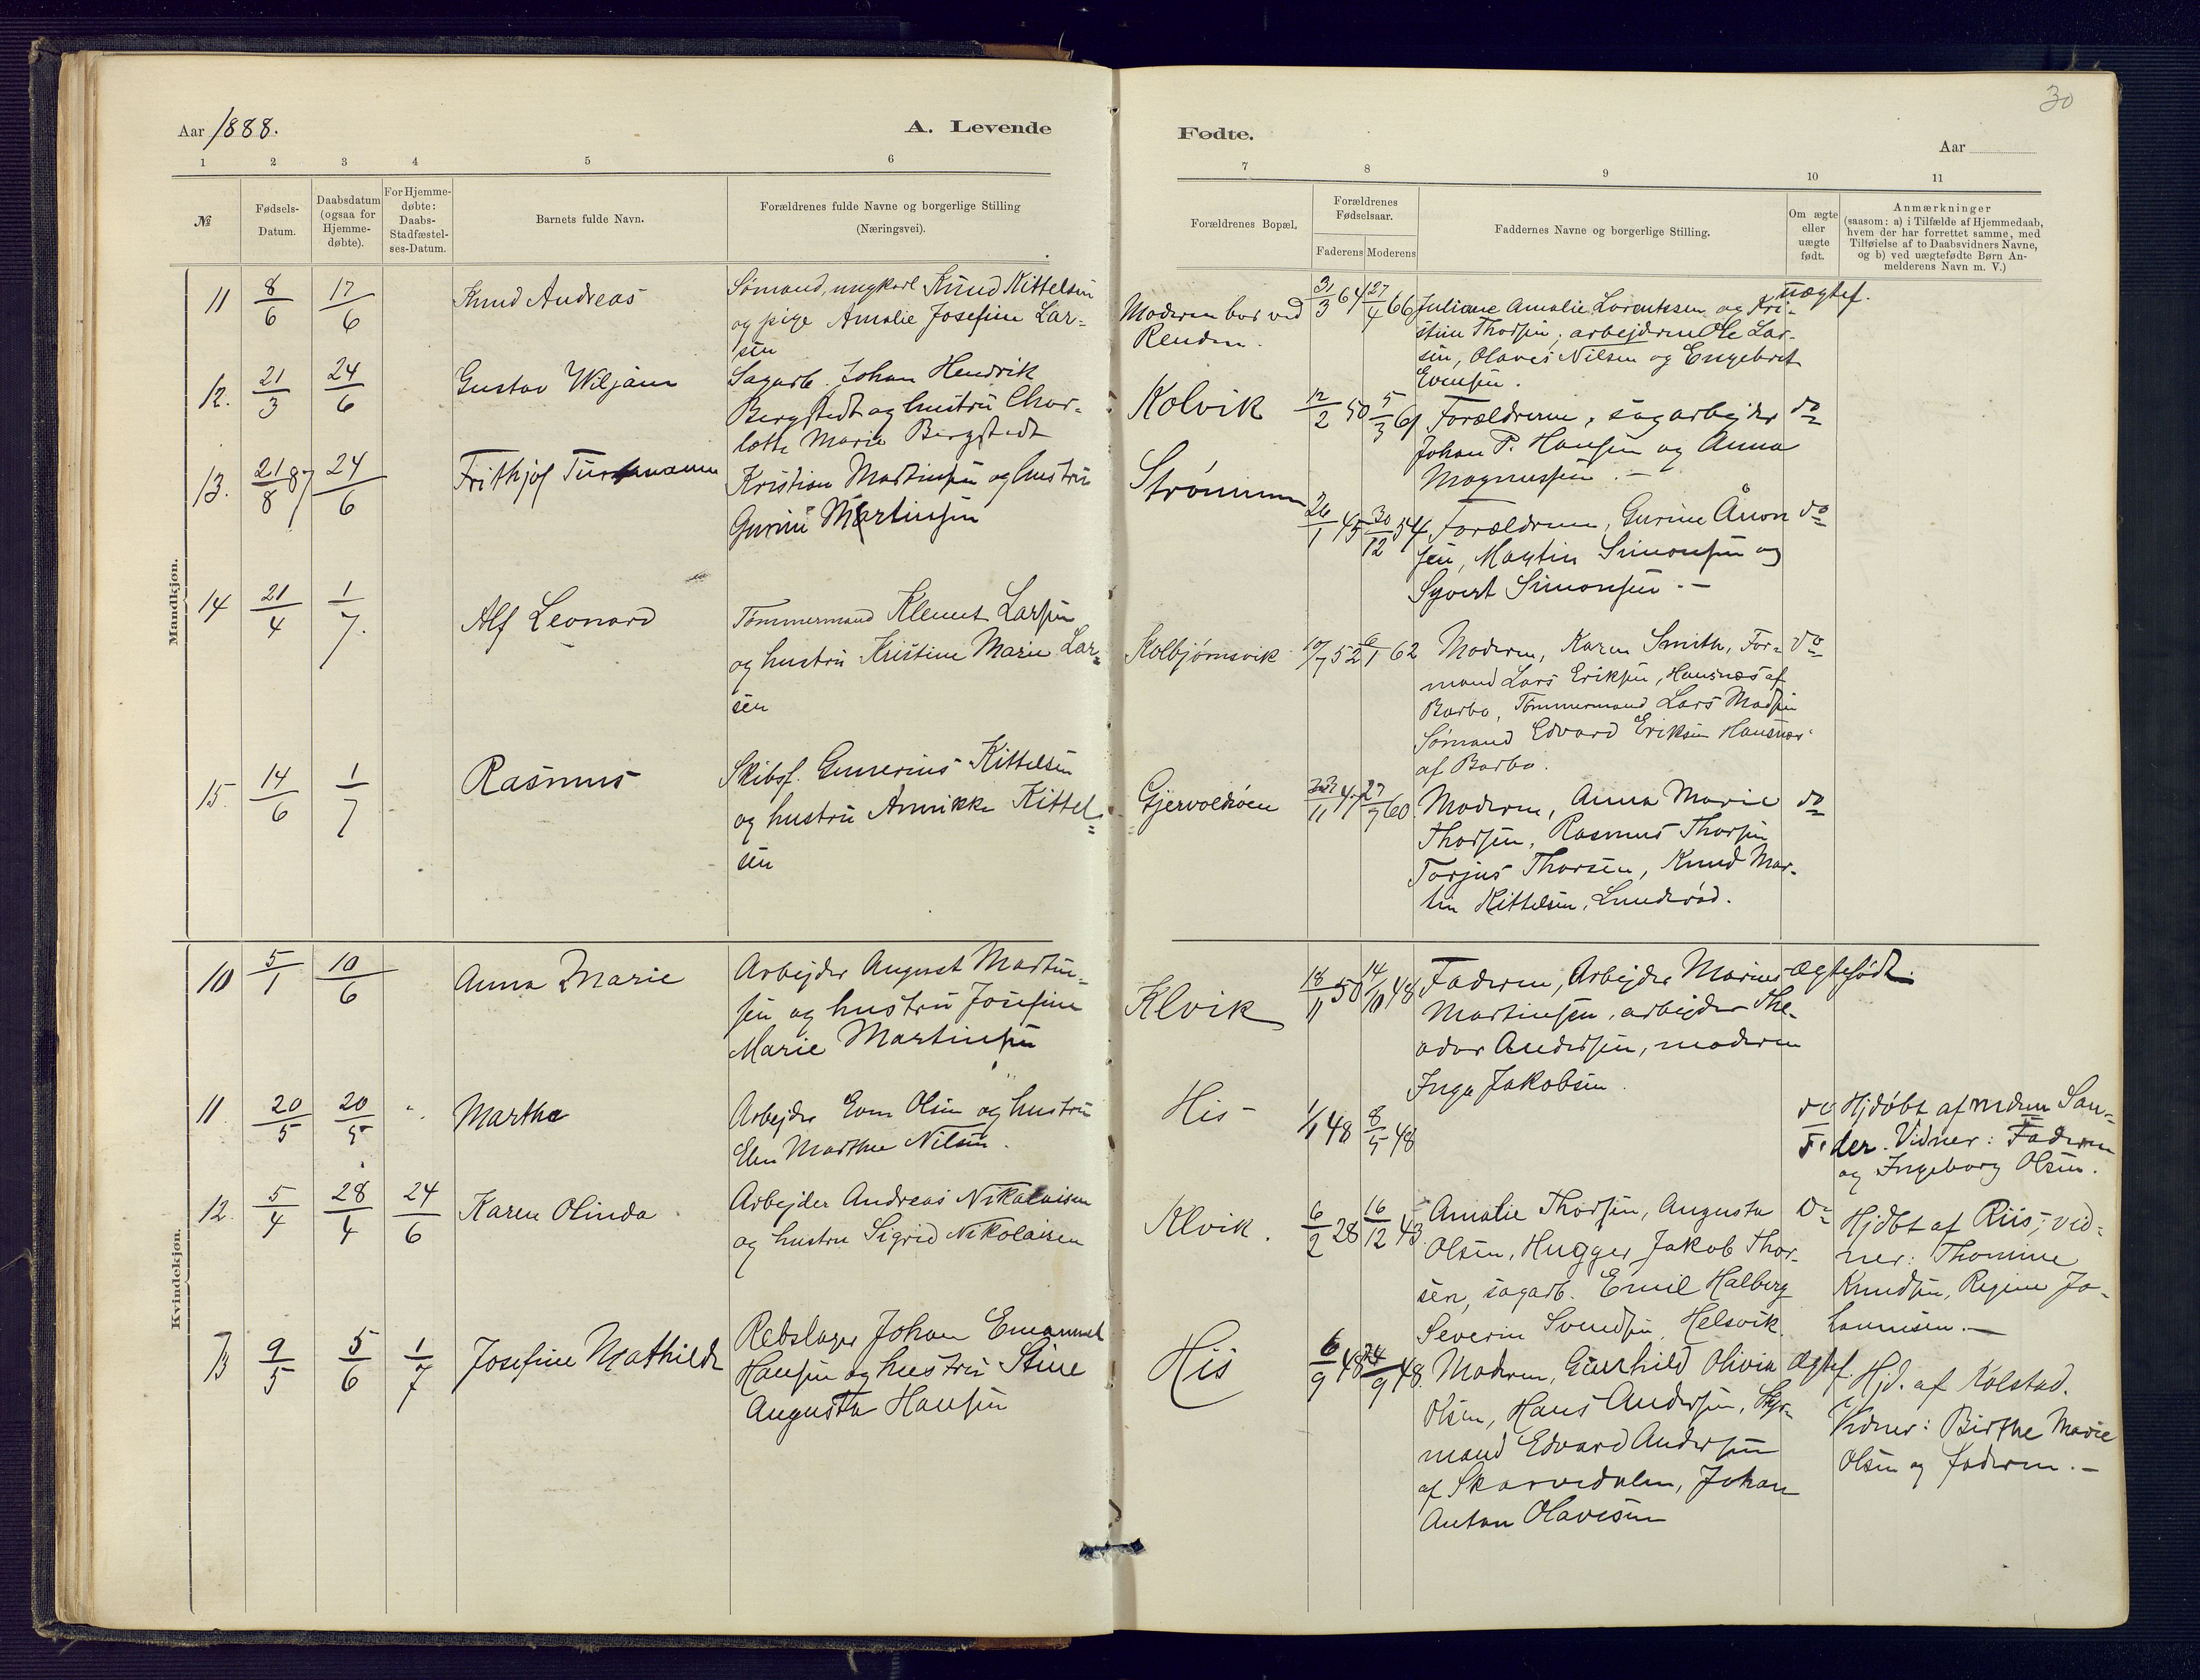 30
Aar 1888.
A. Levende
Fødte.
Aar
1 2 3 4 5 6
7 8 9 10 11
№
Fødsels-
Datum.
Daabsdatum
(ogsaa for
Hjemme-
døbte).
For Hjemme-
døbte:
Daabs-
Stadfæstel-
ses-Datum.
Barnets fulde Navn.
Forældrenes fulde Navne og borgerlige Stilling
(Næringsvei).
Forældrenes Bopæl.
Forældrenes
Fødselsaar.
Faderens Moderens
Faddernes Navne og borgerlige Stilling.
Om ægte
eller
uægte
født.
Anmærkninger
(saasom: a) i Tilfælde af Hjemmedaab,
hvem der har forrettet samme, med
Tilføielse af to Daabsvidners Navne,
og b) ved uægtefødte Børn An-
melderens Navn m. V.)
Mandkjøn.
11 8/6 17/6 Knud Andreas
Sømand, ungkarl Knud Kittelsen
og pige Amalie Josefine Lar-
sen
Moderen bor ved
31/3 64 27/4 66
Juliane Amalie Lorentssen og Kri-
stine Thorsen, arbejderne Ole Lar-
sen, Olaves Nilsen og Engebret
Evensen.
uægtef.
12. 21/3 24/6 Gustav Wiljam
Sagarb. Johan Hendrik
Bergstedt og hustru Char-
lotte Marie Bergstedt
Kolvik
12/2 50 5/3 61
Forældrerne, sagarbejder
Johan P. Hansen og Anna
Magnussen. -
do
13. 21/8 87 24/6 Frithjof
Kristian Martinsen og hustru
Gurine Martinsen
Strømmen
26/1 45 30/12 54
Forældrene, Gurine Ånon
sen, Martin Simonsen og
Syvert Simonsen. -
do
14 21/4 1/7. Alf Leonard
Tømmermand Klemet Larsen
og hustru Kristine Marie Lar-
sen
Kolbjørnsvik
10/7 52 6/1 62
Moderen, Karen Smith, For-
mand Lars Eriksen, Hausnæs af
Barbo, Tømmermand Lars Madsen
Sømand Edvard Eriksen Hausnæs
af Barbo.
do
15. 14/6 1/7 Rasmus
Skibsf. Gunerius Kittelsen
og hustru Annikke Kittel-
sen
/11 47 27/7 60
Moderen, Anna Marie
Thorsen, Rasmus Thorsen
Torjus Thorsen, Knud Mar-
tin Kittelsen, Lunderød.
do
Kvindekjøn.
10 5/1 10/6 Anna Marie
Arbejder August Martin-
sen og hustru Josefine
Marie Martinsen
Klvik
18/11 50 14/10 48
Faderen, Arbejder Marius
Martinsen, arbejder The-
odor Andersen, moderen
Inga Jakobsen.
Ægtefødt.
11 20/5 20/5 Marthe
Arbejder Even Olsen og hustru
Elen Marthe Nilsen.
His
1/1 48 8/5 48
do
Hjdøbt af mdm San-
der. Vidner: Faderen
og Ingeborg Olsen.
12. 5/4 28/4 24/6 Karen Olinda
Arbejder Andreas Nikolaisen
og hustru Sigrid Nikolaisen
Klvik.
6/2 28 16/12 43
Amalie Thorsen, Augusta
Olsen, Hugger Jakob Thor-
sen, sagarb. Emil Halberg
Severin Svendsen, Helsvik.
do
Hjdbt af Riis; vid-
ner: Thomine
Knudsen, Regine Jo-
hannesen. -
13 9/5 5/6 1/7 Josefine Mathilde
Rebslager Johan Emanuel
Hansen og hustru Stine
Augusta Hansen
His
6/9 48 24/9 48.
Moderen, Gunhild Olivia
Olsen, Hans Andersen, Styr-
mand Edvard Andersen
af Skarvedalen, Johan
Anton Olavesen
Ægtef.
Hjd. af Kolstad.
Vidner: Birthe Marie
Olsen og faderen. -